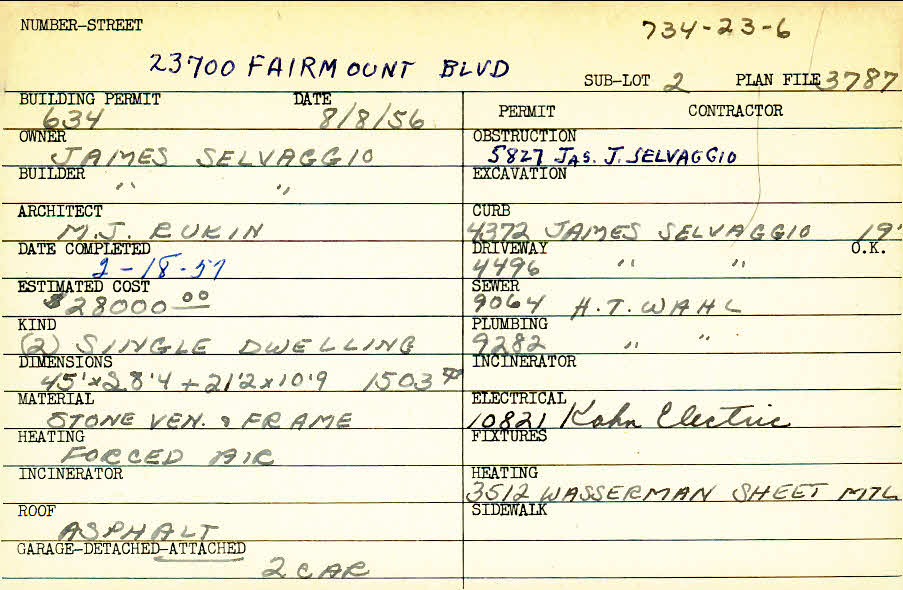 NUMBER-STREET 734-23-6
23700 FAIRMOUNT BLVD
SUB-LOT 2 PLAN FILE 3787
BUILDING PERMIT DATE
634 8/8/56
OWNER
JAMES SELVAGGIO
BUILDER
" "
ARCHITECT
M.J. RUKIN
DATE COMPLETED
2-18-57
ESTIMATED COST
$28000 00
KIND
(2) SINGLE DWELLING
DIMENSIONS
45' x 28'4 + 21'2 x 10'9 1503
MATERIAL
STONE VEN. & FRAME
HEATING
FORCED AIR
INCINERATOR
ROOF
ASPHALT
GARAGE-DETACHED-ATTACHED
2 CAR
PERMIT CONTRACTOR
OBSTRUCTION
5827 JAS. J. SELVAGGIO
EXCAVATION
CURB
4372 JAMES SELVAGGIO 19'
DRIVEWAY O.K.
4496 " "
SEWER
9064 H.T. WAHL
PLUMBING
9282 " "
INCINERATOR
ELECTRICAL
10821 Kohn Electric
FIXTURES
HEATING
3512 WASSERMAN SHEET MTL
SIDEWALK